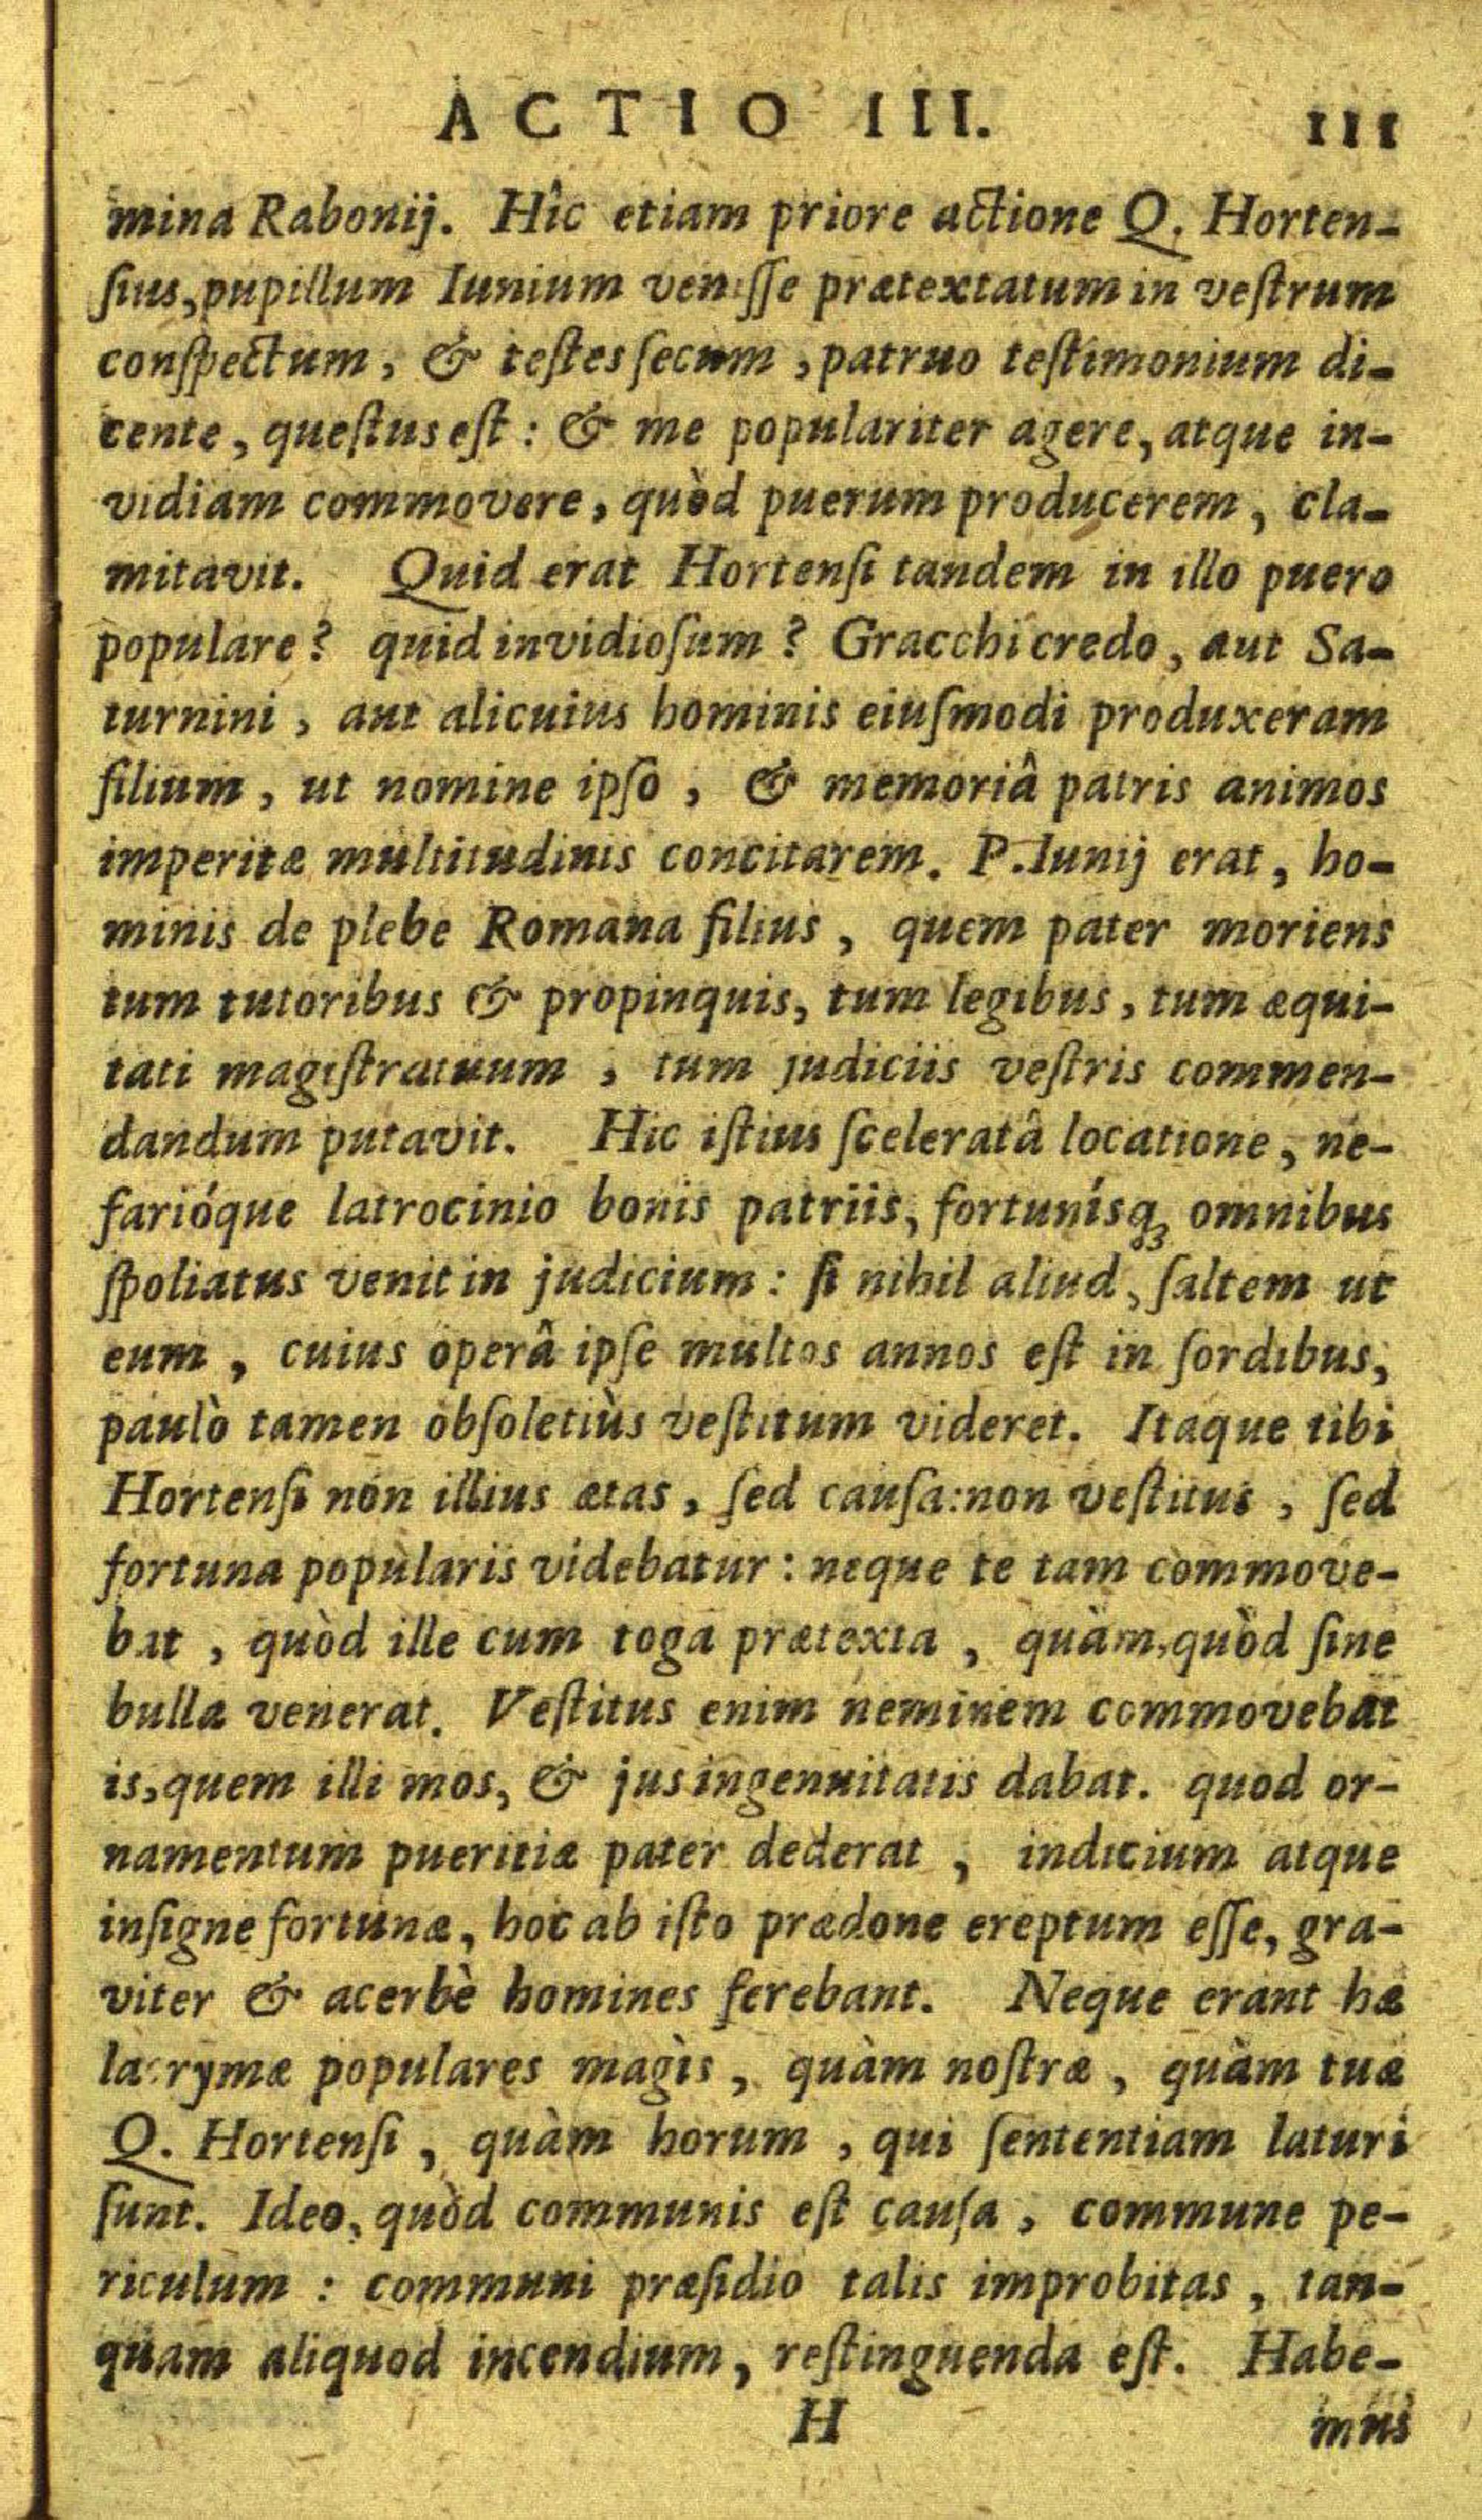 ACTIO III. 111
mina Rabonij. Hîc etiam priore actione Q. Horten-
ſius, pupillum Iunium veniſſe prætextatum in veſtrum
conſpectum, & teſtes ſecum, patruo teſtimonium di-
cente, queſtus eſt: & me populariter agere, atque in-
vidiam commovere, quòd puerum producerem, cla-
mitavit. Quid erat Hortenſi tandem in illo puero
populare? quid invidioſum? Gracchi credo, aut Sa-
turnini, aut alicuius hominis eiuſmodi produxeram
filium, ut nomine ipſo, & memoriâ patris animos
imperitæ multitudinis concitarem. P. Iunij erat, ho-
minis de plebe Romana filius, quem pater moriens
tum tutoribus & propinquis, tum legibus, tum æqui-
tati magiſtratuum, tum judiciis veſtris commen-
dandum putavit. Hic iſtius ſceleratâ locatione, ne-
farióque latrocinio bonis patriis, fortunísqꝫ omnibus
ſpoliatus venit in judicium: ſi nihil aliud, ſaltem ut
eum, cuius operâ ipſe multos annos eſt in ſordibus,
paulò tamen obſoletiùs veſtitum videret. Itaque tibi
Hortenſi non illius ætas, ſed cauſa: non veſtitus, ſed
fortuna popularis videbatur: neque te tam commove-
bat, quòd ille cum toga prætexta, quàm, quòd ſine
bulla venerat. Veſtitus enim neminem commovebat
is, quem illi mos, & jus ingenuitatis dabat. quod or-
namentum pueritiæ pater dederat, indicium atque
inſigne fortunæ, hoc ab iſto prædone ereptum eſſe, gra-
viter & acerbè homines ferebant. Neque erant hæ
lacrymæ populares magìs, quàm noſtræ, quàm tuæ
Q. Hortenſi, quàm horum, qui ſententiam laturi
ſunt. Ideo, quòd communis eſt cauſa, commune pe-
riculum: communi præſidio talis improbitas, tan-
quam aliquod incendium, reſtinguenda eſt. Habe-
H mus